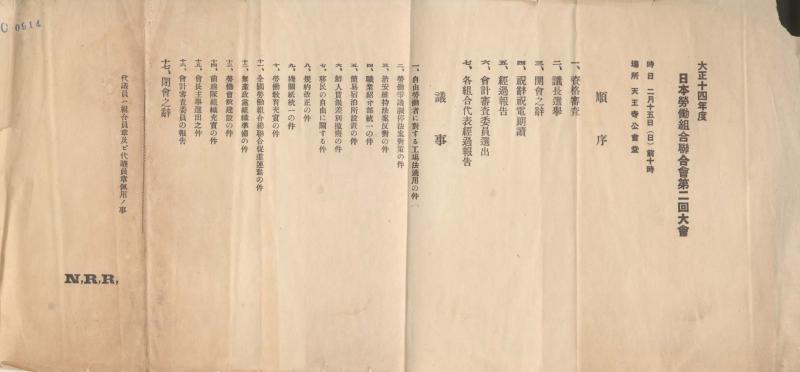 C 0614
大正十四年度
日本勞働組合聯合會第二回大會
時日 二月十五日(日)前十時
場所 天王寺公會堂
順序
一、資格審査
二、議長選擧
三、開會之辭
四、祝辭祝電朗讀
五、經過報告
六、會計審査委員選出
七、各組合代表經過報告
議事
一、自由勞働者に對する工場法適用の件
二、勞働爭議調停法案對策の件
三、治安維持法案反對の件
四、職業紹介部統一の件
五、簡易宿泊所設置の件
六、鮮人賃銀差別撤廢の件
七、移民の自由に關する件
八、規約改正の件
九、機關紙統一の件
十、勞働教育充實の件
十一、全國勞働組合總聯合促進運動の件
十二、無産政黨組織準備の件
十三、勞働會館建設の件
十四、前衛隊組織充實の件
十五、會長主事選出之件
十六、會計審査委員の報告
十七、閉會之辭
代議員ハ組合員章及ビ代議員章佩用ノ事
N,R,R,